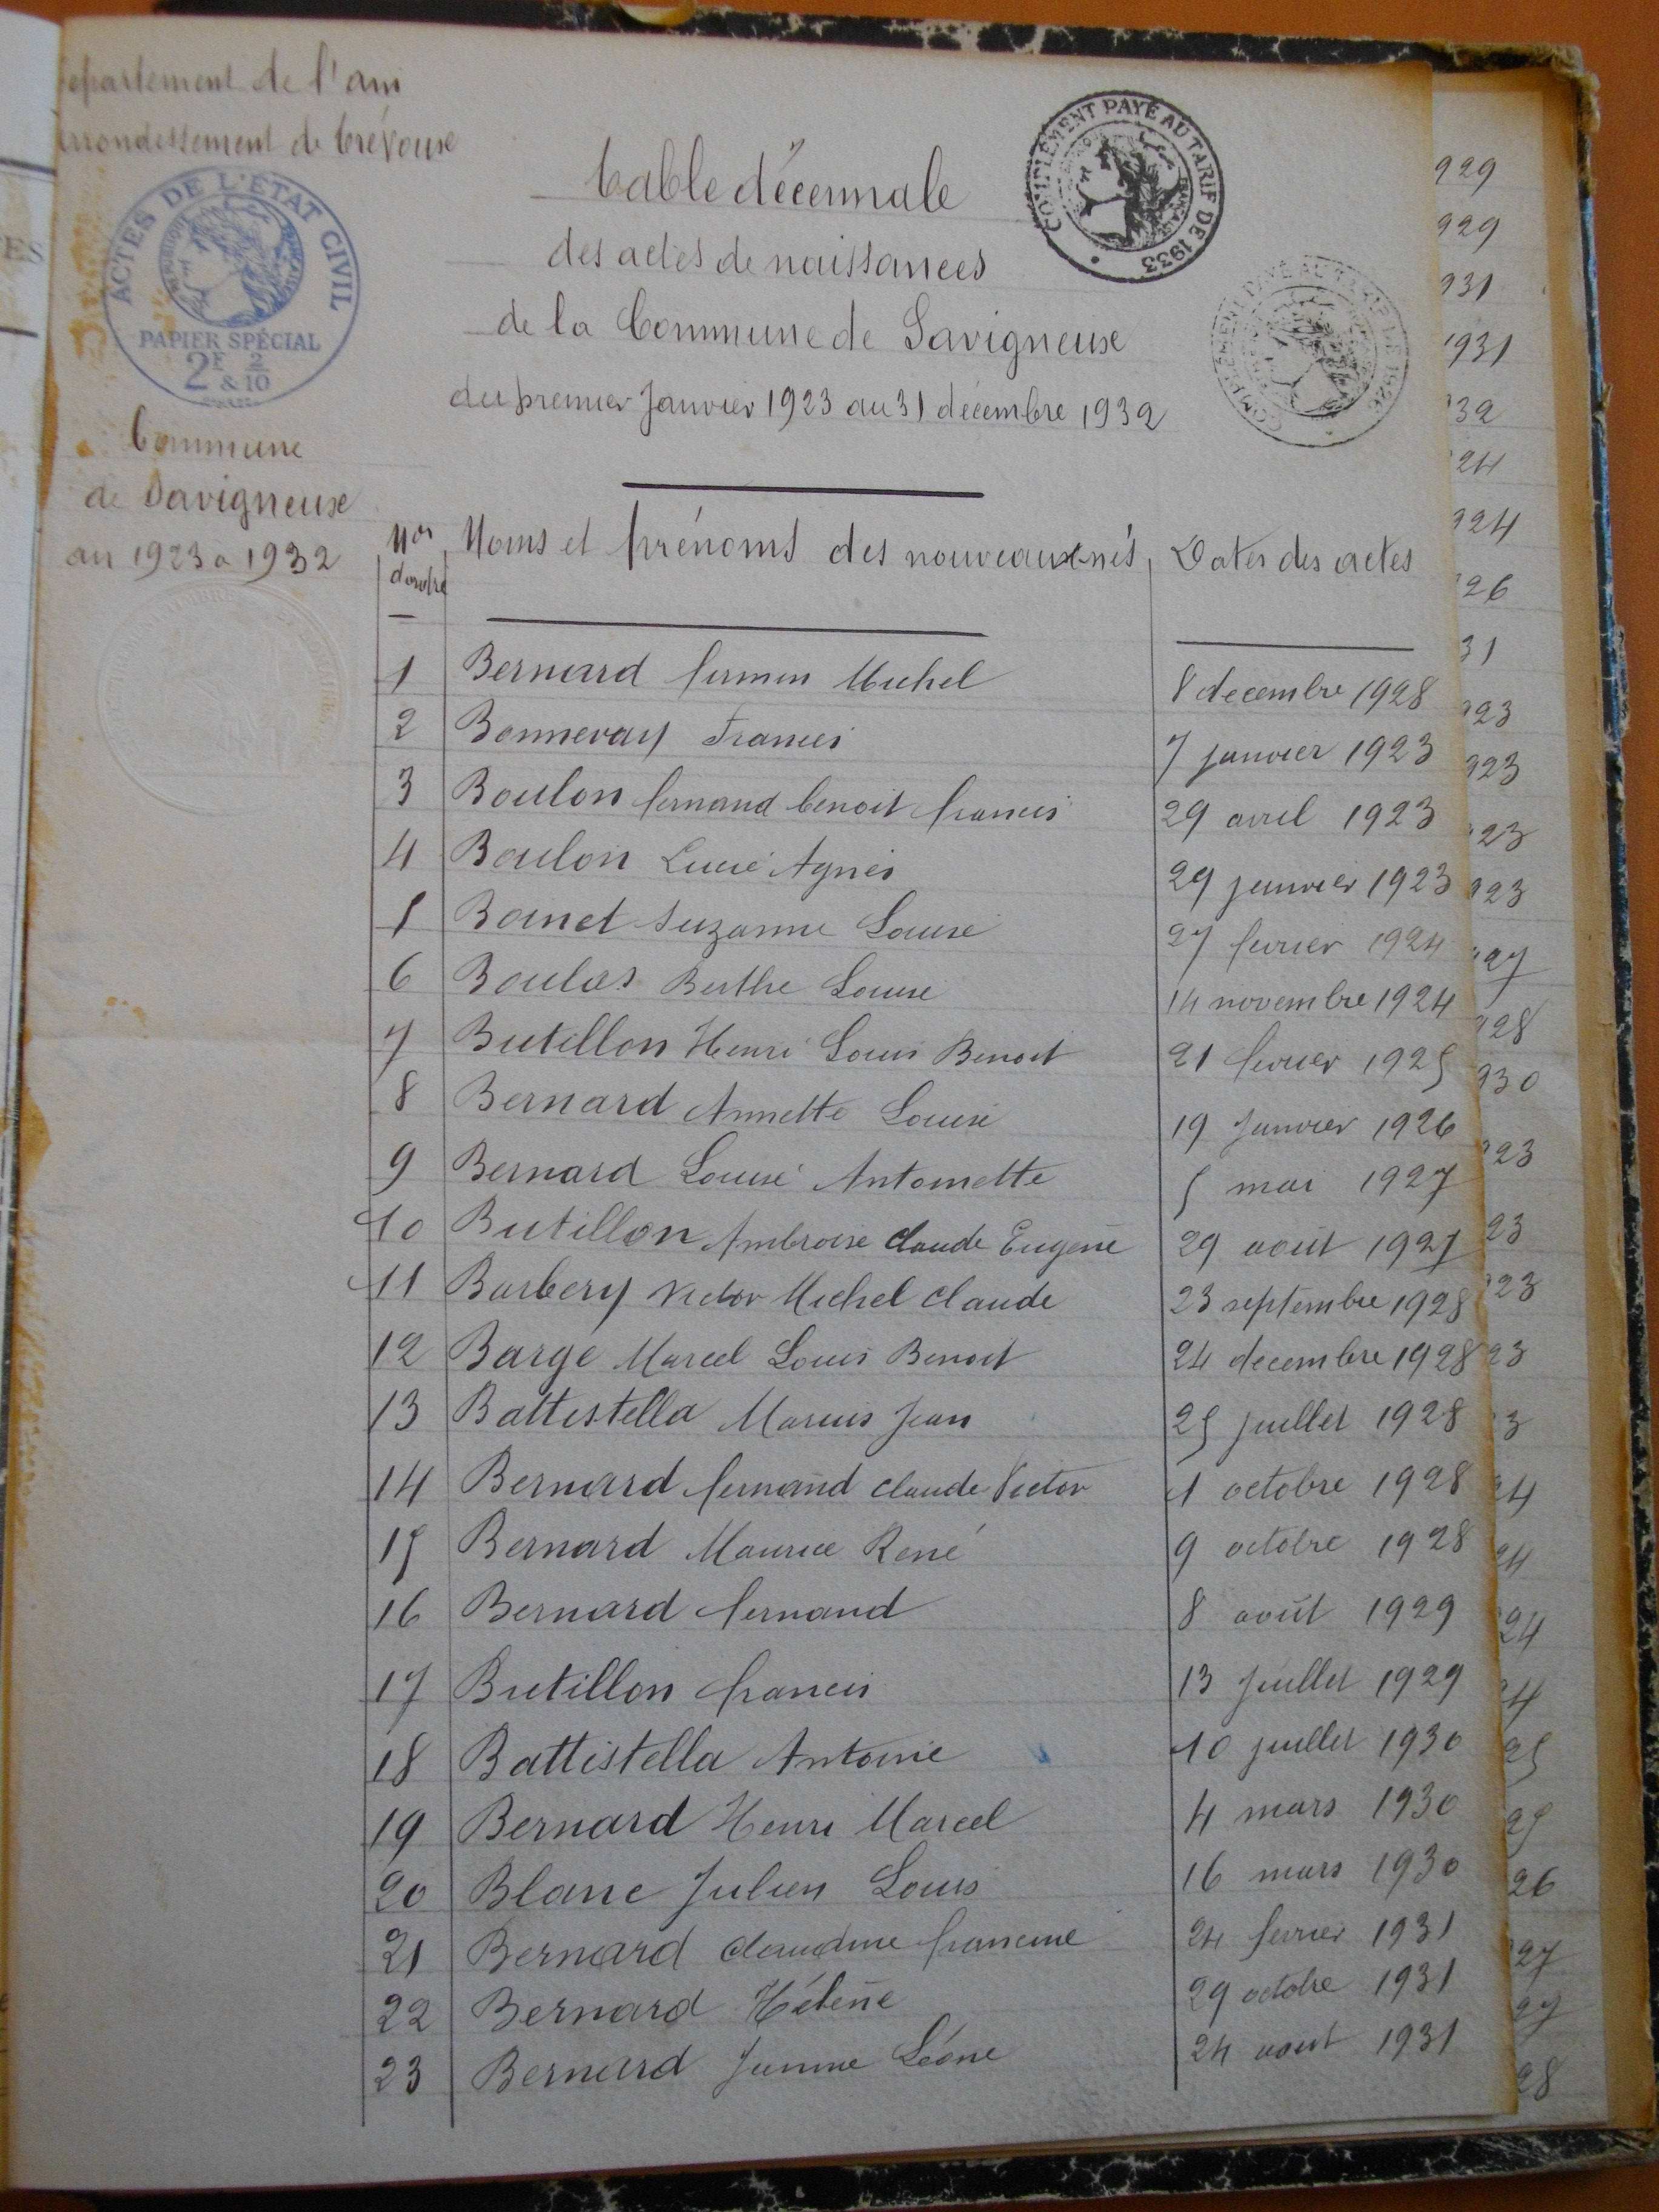 Departement de l'ain
Arrondissement de Trévoux
ACTES DE L'ÉTAT CIVIL
RÉPUBLIQUE FRANÇAISE
PAPIER SPÉCIAL
2F & 2/10
Commune
de Savigneux
an 1923 a 1932
COMPLÉMENT PAYÉ AU TARIF DE 1933
COMPLÉMENT PAYÉ AU TARIF DE 1926
Table décennale
des actes de naissances
de la Commune de Savigneux
du premier Janvier 1923 au 31 décembre 1932
Nos d'ordre Noms et prénoms des nouveaux-nés Dates des actes
1 Bernard firmin Michel 8 decembre 1928
2 Bonnevay Francis 7 janvier 1923
3 Boulon fernand benoit francis 29 avril 1923
4 Boulon Lucie Agnès 29 janvier 1923
5 Bonet Suzanne Louise 27 fevrier 1924
6 Boulas Berthe Louise 14 novembre 1924
7 Butillon Henri Louis Benoit 21 fevrier 1925
8 Bernard Annette Louise 19 Janvier 1926
9 Bernard Louise Antoinette 5 mai 1927
10 Butillon Ambroise Claude Eugene 29 août 1927
11 Barbery Victor Michel Claude 23 septembre 1928
12 Barge Marcel Louis Benoit 24 decembre 1928
13 Battistella Marius Jean 25 juillet 1928
14 Bernard fernand Claude Victor 1 octobre 1928
15 Bernard Maurice René 9 octobre 1928
16 Bernard fernand 8 août 1929
17 Butillon francis 13 Juillet 1929
18 Battistella Antoine 10 juillet 1930
19 Bernard Henri Marcel 4 mars 1930
20 Blanc Julien Louis 16 mars 1930
21 Bernard Claudine francine 24 fevrier 1931
22 Bernard Hélène 29 octobre 1931
23 Bernard Jeanne Léone 24 aout 1931
929
929
931
1931
32
24
924
26
31
923
923
23
923
27
928
930
23
23
23
23
3
24
24
24
24
25
25
26
27
27
28